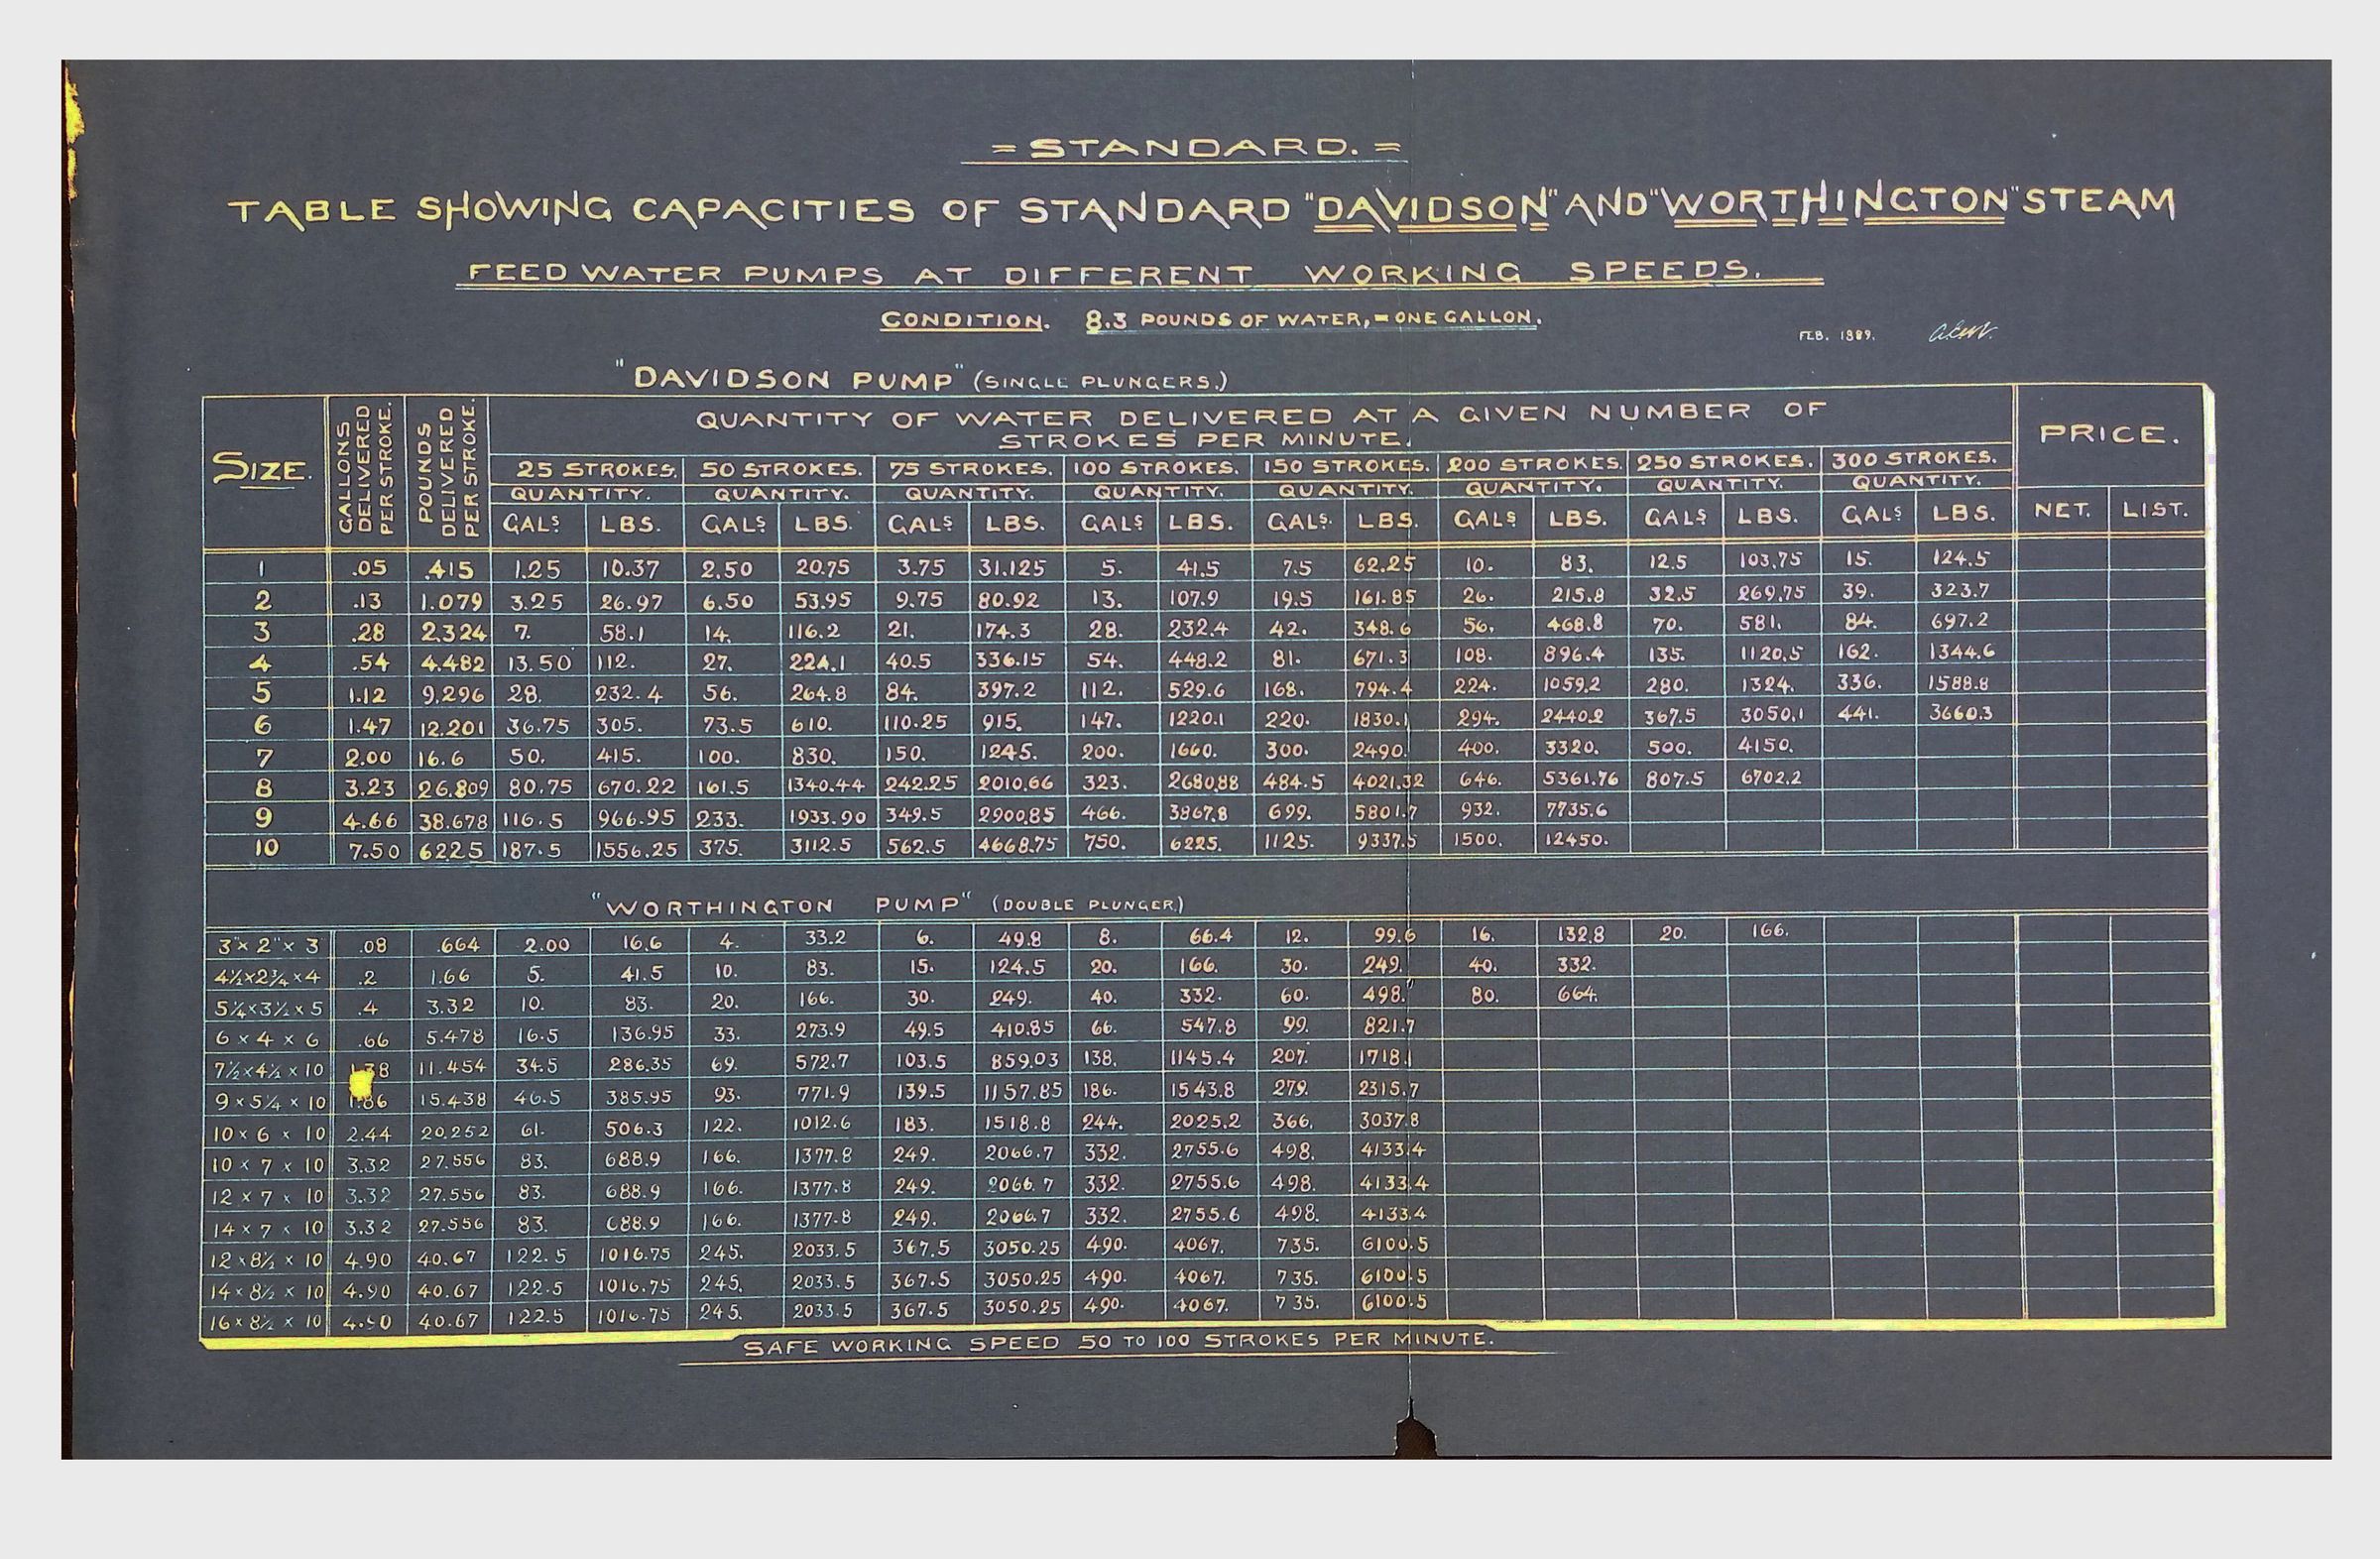 = STANDARD. =
TABLE SHOWING CAPACITIES OF STANDARD "DAVIDSON" AND "WORTHINGTON" STEAM
FEED WATER PUMPS AT DIFFERENT WORKING SPEEDS.
CONDITION. 8.3 POUNDS OF WATER, = ONE GALLON.
FEB. 1889.
"DAVIDSON PUMP" (SINGLE PLUNGERS.)
SIZE. GALLONS DELIVERED PER STROKE. POUNDS DELIVERED PER STROKE. QUANTITY OF WATER DELIVERED AT A GIVEN NUMBER OF
STROKES PER MINUTE. PRICE.
25 STROKES. 50 STROKES. 75 STROKES. 100 STROKES. 150 STROKES. 200 STROKES. 250 STROKES. 300 STROKES.
QUANTITY. QUANTITY. QUANTITY. QUANTITY. QUANTITY. QUANTITY. QUANTITY. QUANTITY.
GALS LBS. GALS LBS. GALS LBS. GALS LBS. GALS. LBS. GALS LBS. GALS LBS. GALS LBS. NET. LIST.
1 .05 .415 1.25 10.37 2.50 20.75 3.75 31.125 5. 41.5 7.5 62.25 10. 83. 12.5 103.75 15. 124.5
2 .13 1.079 3.25 26.97 6.50 53.95 9.75 80.92 13. 107.9 19.5 161.85 26. 215.8 32.5 269.75 39. 323.7
3 .28 2.324 7. 58.1 14. 116.2 21. 174.3 28. 232.4 42. 348.6 56. 468.8 70. 581. 84. 697.2
4 .54 4.482 13.50 112. 27. 224.1 40.5 336.15 54. 448.2 81. 671.3 108. 896.4 135. 1120.5 162. 1344.6
5 1.12 9.296 28. 232.4 56. 264.8 84. 397.2 112. 529.6 168. 794.4 224. 1059.2 280. 1324. 336. 1588.8
6 1.47 12.201 36.75 305. 73.5 610. 110.25 915. 147. 1220.1 220. 1830.1 294. 2440.2 367.5 3050.1 441. 3660.3
7 2.00 16.6 50. 415. 100. 830. 150. 1245. 200. 1660. 300. 2490. 400. 3320. 500. 4150.
8 3.23 26.809 80.75 670.22 161.5 1340.44 242.25 2010.66 323. 2680.88 484.5 4021.32 646. 5361.76 807.5 6702.2
9 4.66 38.678 116.5 966.95 233. 1933.90 349.5 2900.85 466. 3867.8 699. 5801.7 932. 7735.6
10 7.50 6225 187.5 1556.25 375. 3112.5 562.5 4668.75 750. 6225. 1125. 9337.5 1500. 12450.
"WORTHINGTON PUMP" (DOUBLE PLUNGER.)
3" x 2" x 3 .08 .664 2.00 16.6 4. 33.2 6. 49.8 8. 66.4 12. 99.6 16. 132.8 20. 166.
4½ x 2¾ x 4 .2 1.66 5. 41.5 10. 83. 15. 124.5 20. 166. 30. 249. 40. 332.
5¼ x 3½ x 5 .4 3.32 10. 83. 20. 166. 30. 249. 40. 332. 60. 498. 80. 664.
6 x 4 x 6 .66 5.478 16.5 136.95 33. 273.9 49.5 410.85 66. 547.8 99. 821.7
7½ x 4½ x 10 1.38 11.454 34.5 286.35 69. 572.7 103.5 859.03 138. 1145.4 207. 1718.1
9 x 5¼ x 10 1.86 15.438 46.5 385.95 93. 771.9 139.5 1157.85 186. 1543.8 279. 2315.7
10 x 6 x 10 2.44 20.252 61. 506.3 122. 1012.6 183. 1518.8 244. 2025.2 366. 3037.8
10 x 7 x 10 3.32 27.556 83. 688.9 166. 1377.8 249. 2066.7 332. 2755.6 498. 4133.4
12 x 7 x 10 3.32 27.556 83. 688.9 166. 1377.8 249. 2066.7 332. 2755.6 498. 4133.4
14 x 7 x 10 3.32 27.556 83. 688.9 166. 1377.8 249. 2066.7 332. 2755.6 498. 4133.4
12 x 8½ x 10 4.90 40.67 122.5 1016.75 245. 2033.5 367.5 3050.25 490. 4067. 735. 6100.5
14 x 8½ x 10 4.90 40.67 122.5 1016.75 245. 2033.5 367.5 3050.25 490. 4067. 735. 6100.5
16 x 8½ x 10 4.90 40.67 122.5 1016.75 245. 2033.5 367.5 3050.25 490. 4067. 735. 6100.5
SAFE WORKING SPEED 50 TO 100 STROKES PER MINUTE.